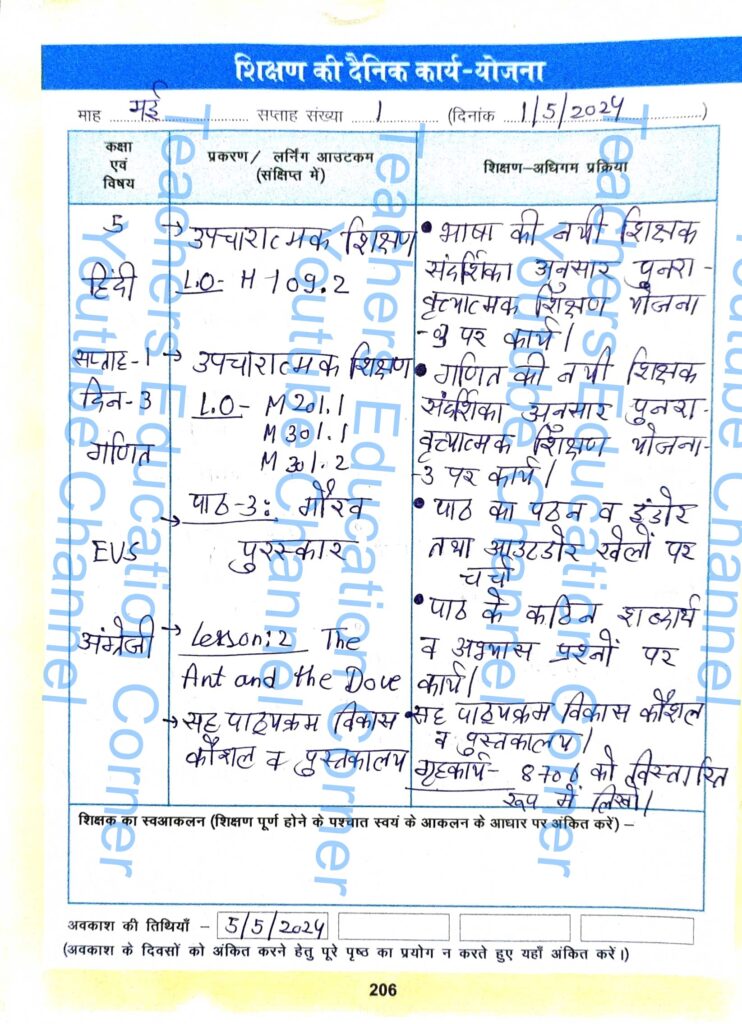 शिक्षण की दैनिक कार्य-योजना
माह ...मई... सप्ताह संख्या ...1... (दिनांक ...1/5/2024...)
कक्षा एवं विषय
प्रकरण/ लर्निंग आउटकम (संक्षिप्त में)
शिक्षण-अधिगम प्रक्रिया
5
हिंदी
→ उपचारात्मक शिक्षण
L.O- H-109.2
• भाषा की नयी शिक्षक
संदर्शिका अनुसार पुनरा-
वृत्यात्मक शिक्षण योजना
पर कार्य।
सप्ताह-1
दिन-3
गणित
→ उपचारात्मक शिक्षण
L.O- M201.1
M301.1
M301.2
• गणित की नयी शिक्षक
संदर्शिका अनुसार पुनरा-
वृत्यात्मक शिक्षण योजना-
-3 पर कार्य।
EVS
→ पाठ-3: गौरव
पुरस्कार
• पाठ का पठन व इंडोर
तथा आउटडोर खेलों पर
चर्चा
अंग्रेजी
→ Lesson:2 The
Ant and the Dove
• पाठ के कठिन शब्दार्थ
व अभ्यास प्रश्नों पर
कार्य।
→ सह पाठ्यक्रम विकास
कौशल व पुस्तकालय
• सह पाठ्यक्रम विकास कौशल
व पुस्तकालय।
गृहकार्य- 8706 को विस्तारित
रूप में लिखो।
शिक्षक का स्वआकलन (शिक्षण पूर्ण होने के पश्चात स्वयं के आकलन के आधार पर अंकित करें) –
अवकाश की तिथियाँ – 5/5/2024
(अवकाश के दिवसों को अंकित करने हेतु पूरे पृष्ठ का प्रयोग न करते हुए यहाँ अंकित करें।)
206
Teachers Education Corner
Youtube Channel
Teachers Education Corner
Youtube Channel
Teachers Education Corner
Youtube Channel